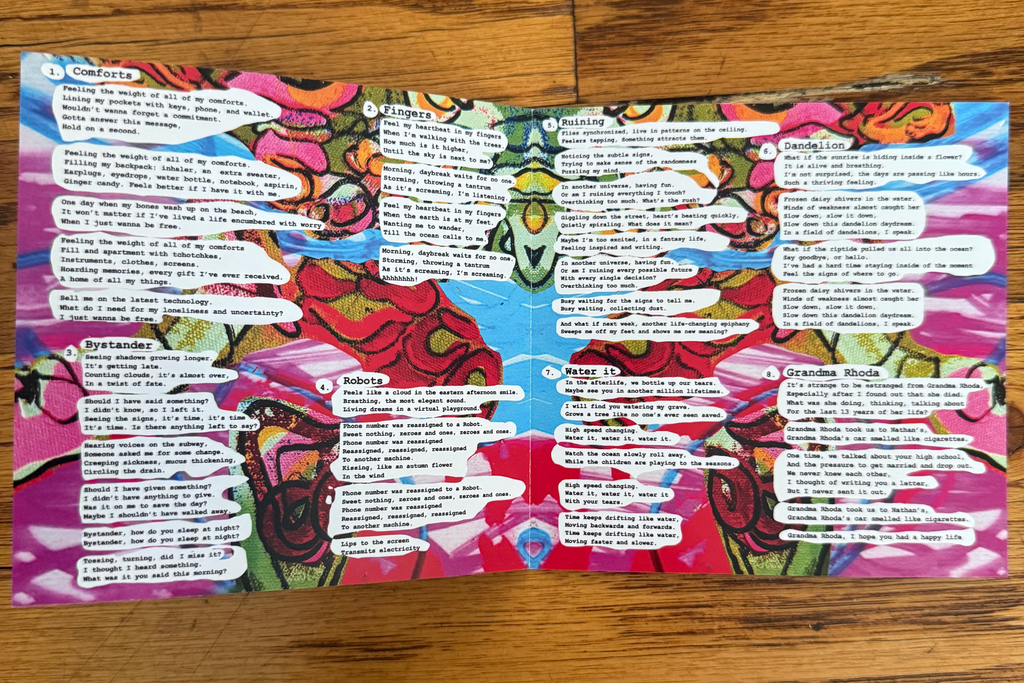 1. Comforts
Feeling the weight of all of my comforts.
Lining my pockets with keys, phone, and wallet.
Wouldn't wanna forget a commitment.
Gotta answer this message,
Hold on a second.
Feeling the weight of all of my comforts.
Filling my backpack: inhaler, an extra sweater,
Earplugs, eyedrops, water bottle, notebook, aspirin,
Ginger candy. Feels better if I have it with me
One day when my bones wash up on the beach,
It won't matter if I've lived a life encumbered with worry
When I just wanna be free.
Feeling the weight of all of my comforts
Fill and apartment with tchotchkes,
Instruments, clothes, screens.
Hoarding memories, every gift I've ever received.
A home of all my things.
Sell me on the latest technology.
What do I need for my loneliness and uncertainty?
I just wanna be free.
2. Fingers
Feel my heartbeat in my fingers
When I'm walking with the trees.
How much is it higher,
Until the sky is next to me?
Morning, daybreak waits for no one
Storming, throwing a tantrum
As it's screaming, I'm listening.
Feel my heartbeat in my fingers
When the earth is at my feet
Wanting me to wander,
Till the ocean calls to me.
Morning, daybreak waits for no one.
Storming, throwing a tantrum
As it's screaming, I'm screaming.
Ahhhhhhh!
3. Bystander
Seeing shadows growing longer.
It's getting late.
Counting clouds, it's almost over,
In a twist of fate.
Should I have said something?
I didn't know, so I left it.
Seeing the signs, it's time, it's time
It's time. Is there anything left to say?
Hearing voices on the subway,
Someone asked me for some change.
Creeping sickness, mucus thickening,
Circling the drain.
Should I have given something?
I didn't have anything to give.
Was it on me to save the day?
Maybe I shouldn't have walked away.
Bystander, how do you sleep at night?
Bystander, how do you sleep at night?
Tossing, turning, did I miss it?
I thought I heard something.
What was it you said this morning?
4. Robots
Feels like a cloud in the eastern afternoon smile.
Breathing, the most elegant sound.
Living dreams in a virtual playground.
Phone number was reassigned to a Robot.
Sweet nothing, zeroes and ones, zeroes and ones.
Phone number was reassigned
Reassigned, reassigned, reassigned
To another machine.
Kissing, like an autumn flower
In the wind
Phone number was reassigned to a Robot.
Sweet nothing, zeroes and ones, zeroes and ones.
Phone number was reassigned
Reassigned, reassigned, reassigned
To another machine.
Lips to the screen
Transmits electricity
5. Ruining
Flies synchronized, live in patterns on the ceiling.
Feelers tapping, Something attracts them.
Noticing the subtle signs,
Trying to make sense of the randomness
Puzzling my mind.
In another universe, having fun.
Or am I ruining everything I touch?
Overthinking too much. What's the rush?
Giggling down the street, heart's beating quickly,
Quietly spiraling. What does it mean?
Maybe I'm too excited, in a fantasy life,
Feeling inspired and writing.
In another universe, having fun.
Or am I ruining every possible future
With every single decision?
Overthinking too much.
Busy waiting for the signs to tell me.
Busy waiting, collecting dust.
And what if next week, another life-changing epiphany
Sweeps me off my feet and shows me new meaning?
6. Dandelion
What if the sunrise is hiding inside a flower?
It is alive and breathing.
I'm not surprised, the days are passing like hours.
Such a thriving feeling.
Frozen daisy shivers in the water.
Winds of weakness almost caught her
Slow down, slow it down,
Slow down this dandelion daydream.
In a field of dandelions, I speak.
What if the riptide pulled us all into the ocean?
Say goodbye, or hello.
I've had a hard time staying inside of the moment
Feel the signs of where to go.
Frozen daisy shivers in the water.
Winds of weakness almost caught her
Slow down, slow it down.
Slow down this dandelion daydream.
In a field of dandelions, I speak.
7. Water it
In the afterlife, we bottle up our tears.
Maybe see you in another million lifetimes.
I will find you watering my grave,
Grows a tree like no one's ever seen saved.
High speed changing.
Water it, water it, water it.
Watch the ocean slowly roll away,
While the children are playing to the seasons.
High speed changing.
Water it, water it, water it
With your tears.
Time keeps drifting like water,
Moving backwards and forwards.
Time keeps drifting like water,
Moving faster and slower.
8. Grandma Rhoda
It's strange to be estranged from Grandma Rhoda,
Especially after I found out that she died.
What was she doing, thinking, talking about
For the last 13 years of her life?
Grandma Rhoda took us to Nathan's,
Grandma Rhoda's car smelled like cigarettes.
One time, we talked about your high school,
And the pressure to get married and drop out.
We never knew each other.
I thought of writing you a letter,
But I never sent it out.
Grandma Rhoda took us to Nathan's,
Grandma Rhoda's car smelled like cigarettes.
Grandma Rhoda, I hope you had a happy life